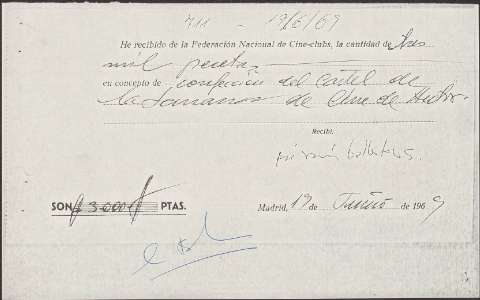 711 - 19/6/69
He recibido de la Federación Nacional de Cine-clubs, la cantidad de tres
mil pesetas
en concepto de confección del Cartel de
la Semana de Cine de Autor.
Recibí.
SON # 3.000 # PTAS.
Madrid, 19 de Junio de 1969